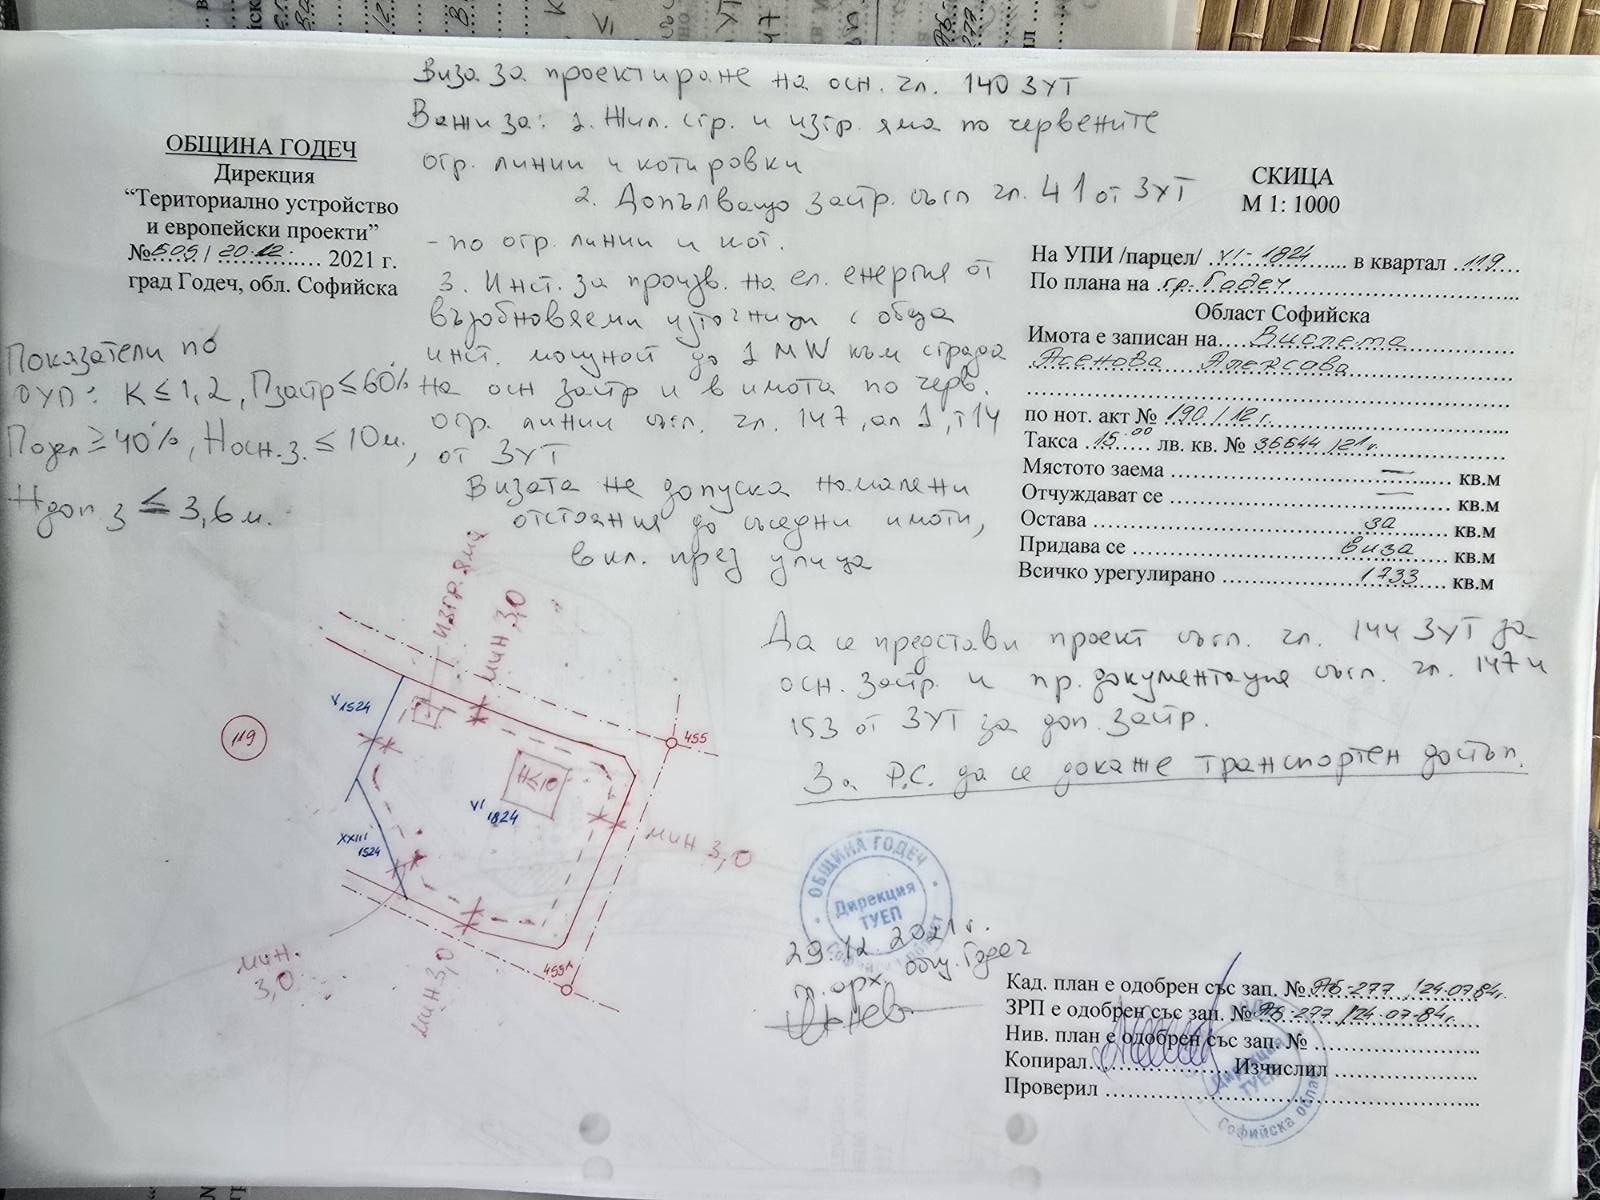 Виза за проектиране на осн. чл. 140 ЗУТ
Важи за: 1. Жил. стр. и изгр. яма по червените
огр. линии и котировки
2. Допълващо застр. съгл чл. 41 от ЗУТ
- по огр. линии и кот.
3. Инст. за произв. на ел. енергия от
възобновяеми източници с обща
инст. мощност до 1 MW към сграда
на осн застр и в имота по черв.
огр. линии съгл. чл. 147, ал 1, т 14
от ЗУТ
Визата не допуска намалени
отстояния до съседни имоти,
вкл. през улица
ОБЩИНА ГОДЕЧ
Дирекция
“Териториално устройство
и европейски проекти”
№ 505 / 20.12. 2021 г.
град Годеч, обл. Софийска
Показатели по
ОУП: К ≤ 1,2, Пзастр ≤ 60%
Позел ≥ 40%,Носн.з. ≤ 10м,
Ндоп.з ≤ 3,6м.
СКИЦА
М 1: 1000
На УПИ /парцел/ VI-1824 в квартал 119
По плана на гр. Годеч
Област Софийска
Имота е записан на Виолета
Асенова Алексова
по нот. акт № 190 / 12 г.
Такса 15.00 лв. кв. № 36644 /21 г.
Мястото заема — кв.м
Отчуждават се — кв.м
Остава за кв.м
Придава се виза кв.м
Всичко урегулирано 1733 кв.м
Да се представи проект съгл. чл. 144 ЗУТ за
осн. застр. и пр. документация съгл. чл. 147 и
153 от ЗУТ за доп. застр.
За Р.С. да се докаже транспортен достъп.
изгр. яма
мин 3,0
V 1524
119
455
Н≤10
VI 1824
XXIII 1524
мин 3,0
455А
мин. 3,0
мин 3,0
ОБЩИНА ГОДЕЧ
Дирекция
ТУЕП
29.12.2021 г.
арх. общ. Годеч
Кад. план е одобрен със зап. № АБ-277 / 24.07.84г.
ЗРП е одобрен със зап. № АБ-277 / 24.07.84г.
Нив. план е одобрен със зап. №
Копирал Изчислил
Проверил
Дирекция
ТУЕП
Софийска област